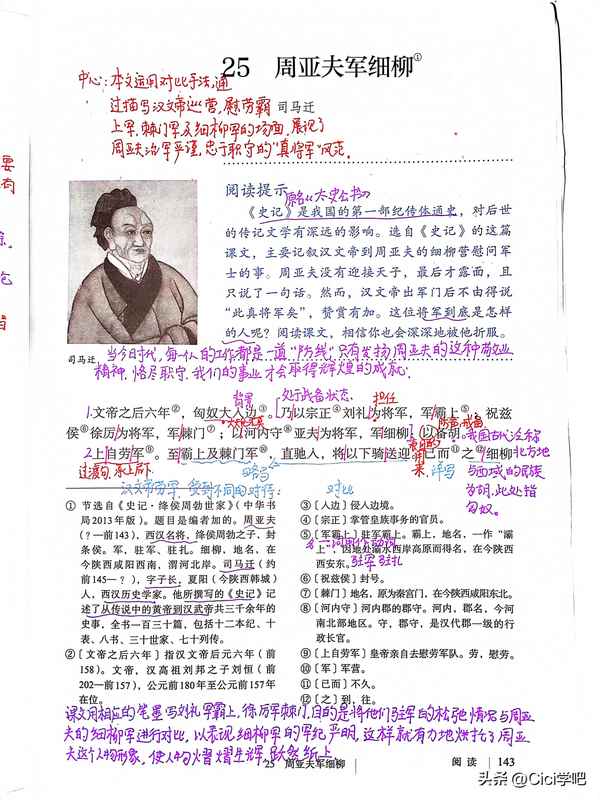 25 周亚夫军细柳①
中心:本文运用对比手法,通
过描写汉文帝巡营,慰劳霸
上军、棘门军及细柳军的场面,展现了
周亚夫治军严谨,忠于职守的“真将军”风范。
司马迁
阅读提示
原名《太史公书》
《史记》是我国的第一部纪传体通史,对后世
的传记文学有深远的影响。选自《史记》的这篇
课文,主要记叙汉文帝到周亚夫的细柳营慰问军
士的事。周亚夫没有迎接天子,最后才露面,且
只说了一句话。然而,汉文帝出军门后不由得说
“此真将军矣”,赞赏有加。这位将军到底是怎样
的人呢?阅读课文,相信你也会深深地被他折服。
司马迁
当今时代,每个人的工作都是一道“防线”,只有发扬周亚夫的这种敬业
精神,恪尽职守,我们的事业才会取得辉煌的成就。
背景
处于战备状态
担任
1.文帝之后六年②,匈奴大入边③。乃以宗正④刘礼为将军,军霸上⑤;祝兹
侯⑥徐厉为将军,军棘门⑦;以河内守⑧亚夫为将军,军细柳:以备胡。
防备,戒备
我国古代泛称
北方地
与西域的民族
为胡,此处指
匈奴。
2.上自劳军⑨。至霸上及棘门军⑩,直驰入,将以下骑送迎。已而⑪之⑫细柳
过渡句,承上启下
略写
来
详写
汉文帝劳军,受到不同的对待:
对比
①〔节选自《史记·绛侯周勃世家》(中华书
局2013年版)。题目是编者加的。周亚夫
(?—前143),西汉名将,绛侯周勃之子,封
条侯。军,驻军、驻扎。细柳,地名,在
今陕西咸阳西南,渭河北岸。司马迁(约
前145—?),字子长,夏阳(今陕西韩城)
人,西汉历史学家。他所撰写的《史记》记
述了从传说中的黄帝到汉武帝共三千余年的
史事,全书一百三十篇,包括十二本纪、十
表、八书、三十世家、七十列传。
②〔文帝之后六年〕指汉文帝后元六年(前
158)。文帝,汉高祖刘邦之子刘恒(前
202—前157),公元前180年至公元前157年
在位。
③〔入边〕侵入边境。
④〔宗正〕掌管皇族事务的官员。
⑤〔军霸上〕驻军霸上。霸上,地名,一作“灞
上”,因地处灞水西岸高原而得名,在今陕西
西安东。
驻军,驻扎
⑥〔祝兹侯〕封号。
⑦〔棘门〕地名,原为秦宫门,在今陕西咸阳东北。
⑧〔河内守〕河内郡的郡守。河内,郡名,今河
南北部地区。守,郡守,是汉代郡一级的行
政长官。
⑨〔上自劳军〕皇帝亲自去慰劳军队。劳,慰劳。
⑩〔军〕军营。
⑪〔已而〕不久。
⑫〔之〕到,往。
课文用相应的笔墨写刘礼军霸上,徐厉军棘门,目的是将他们驻军的松弛情况与周亚
夫的细柳军进行对比,以表现细柳军的军纪严明,这样就有力地烘托了周亚
夫这个人物形象,使人物熠熠生辉,跃然纸上。
25 周亚夫军细柳
阅读 143
头条 @Cici学吧
要
有